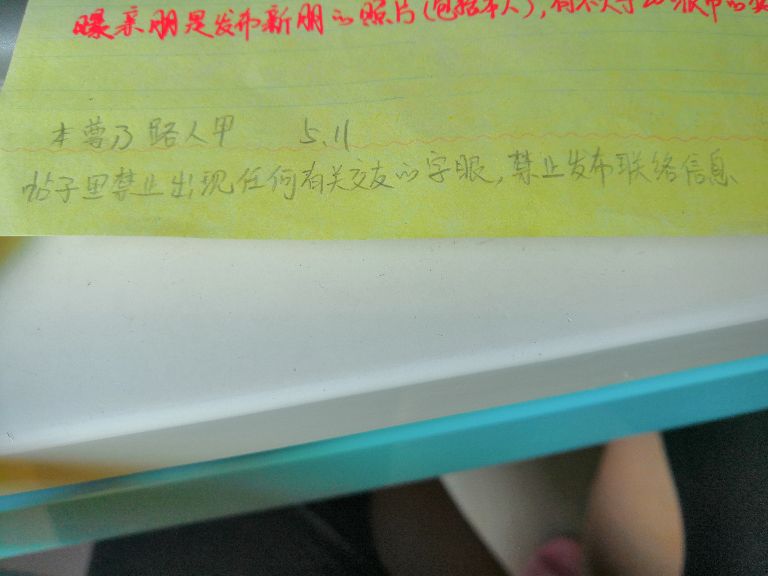 曝亲朋是发布新朋的照片(包括本人),
本尊乃路人甲 5.11
帖子里禁止出现任何有关交友的字眼,禁止发布联络信息